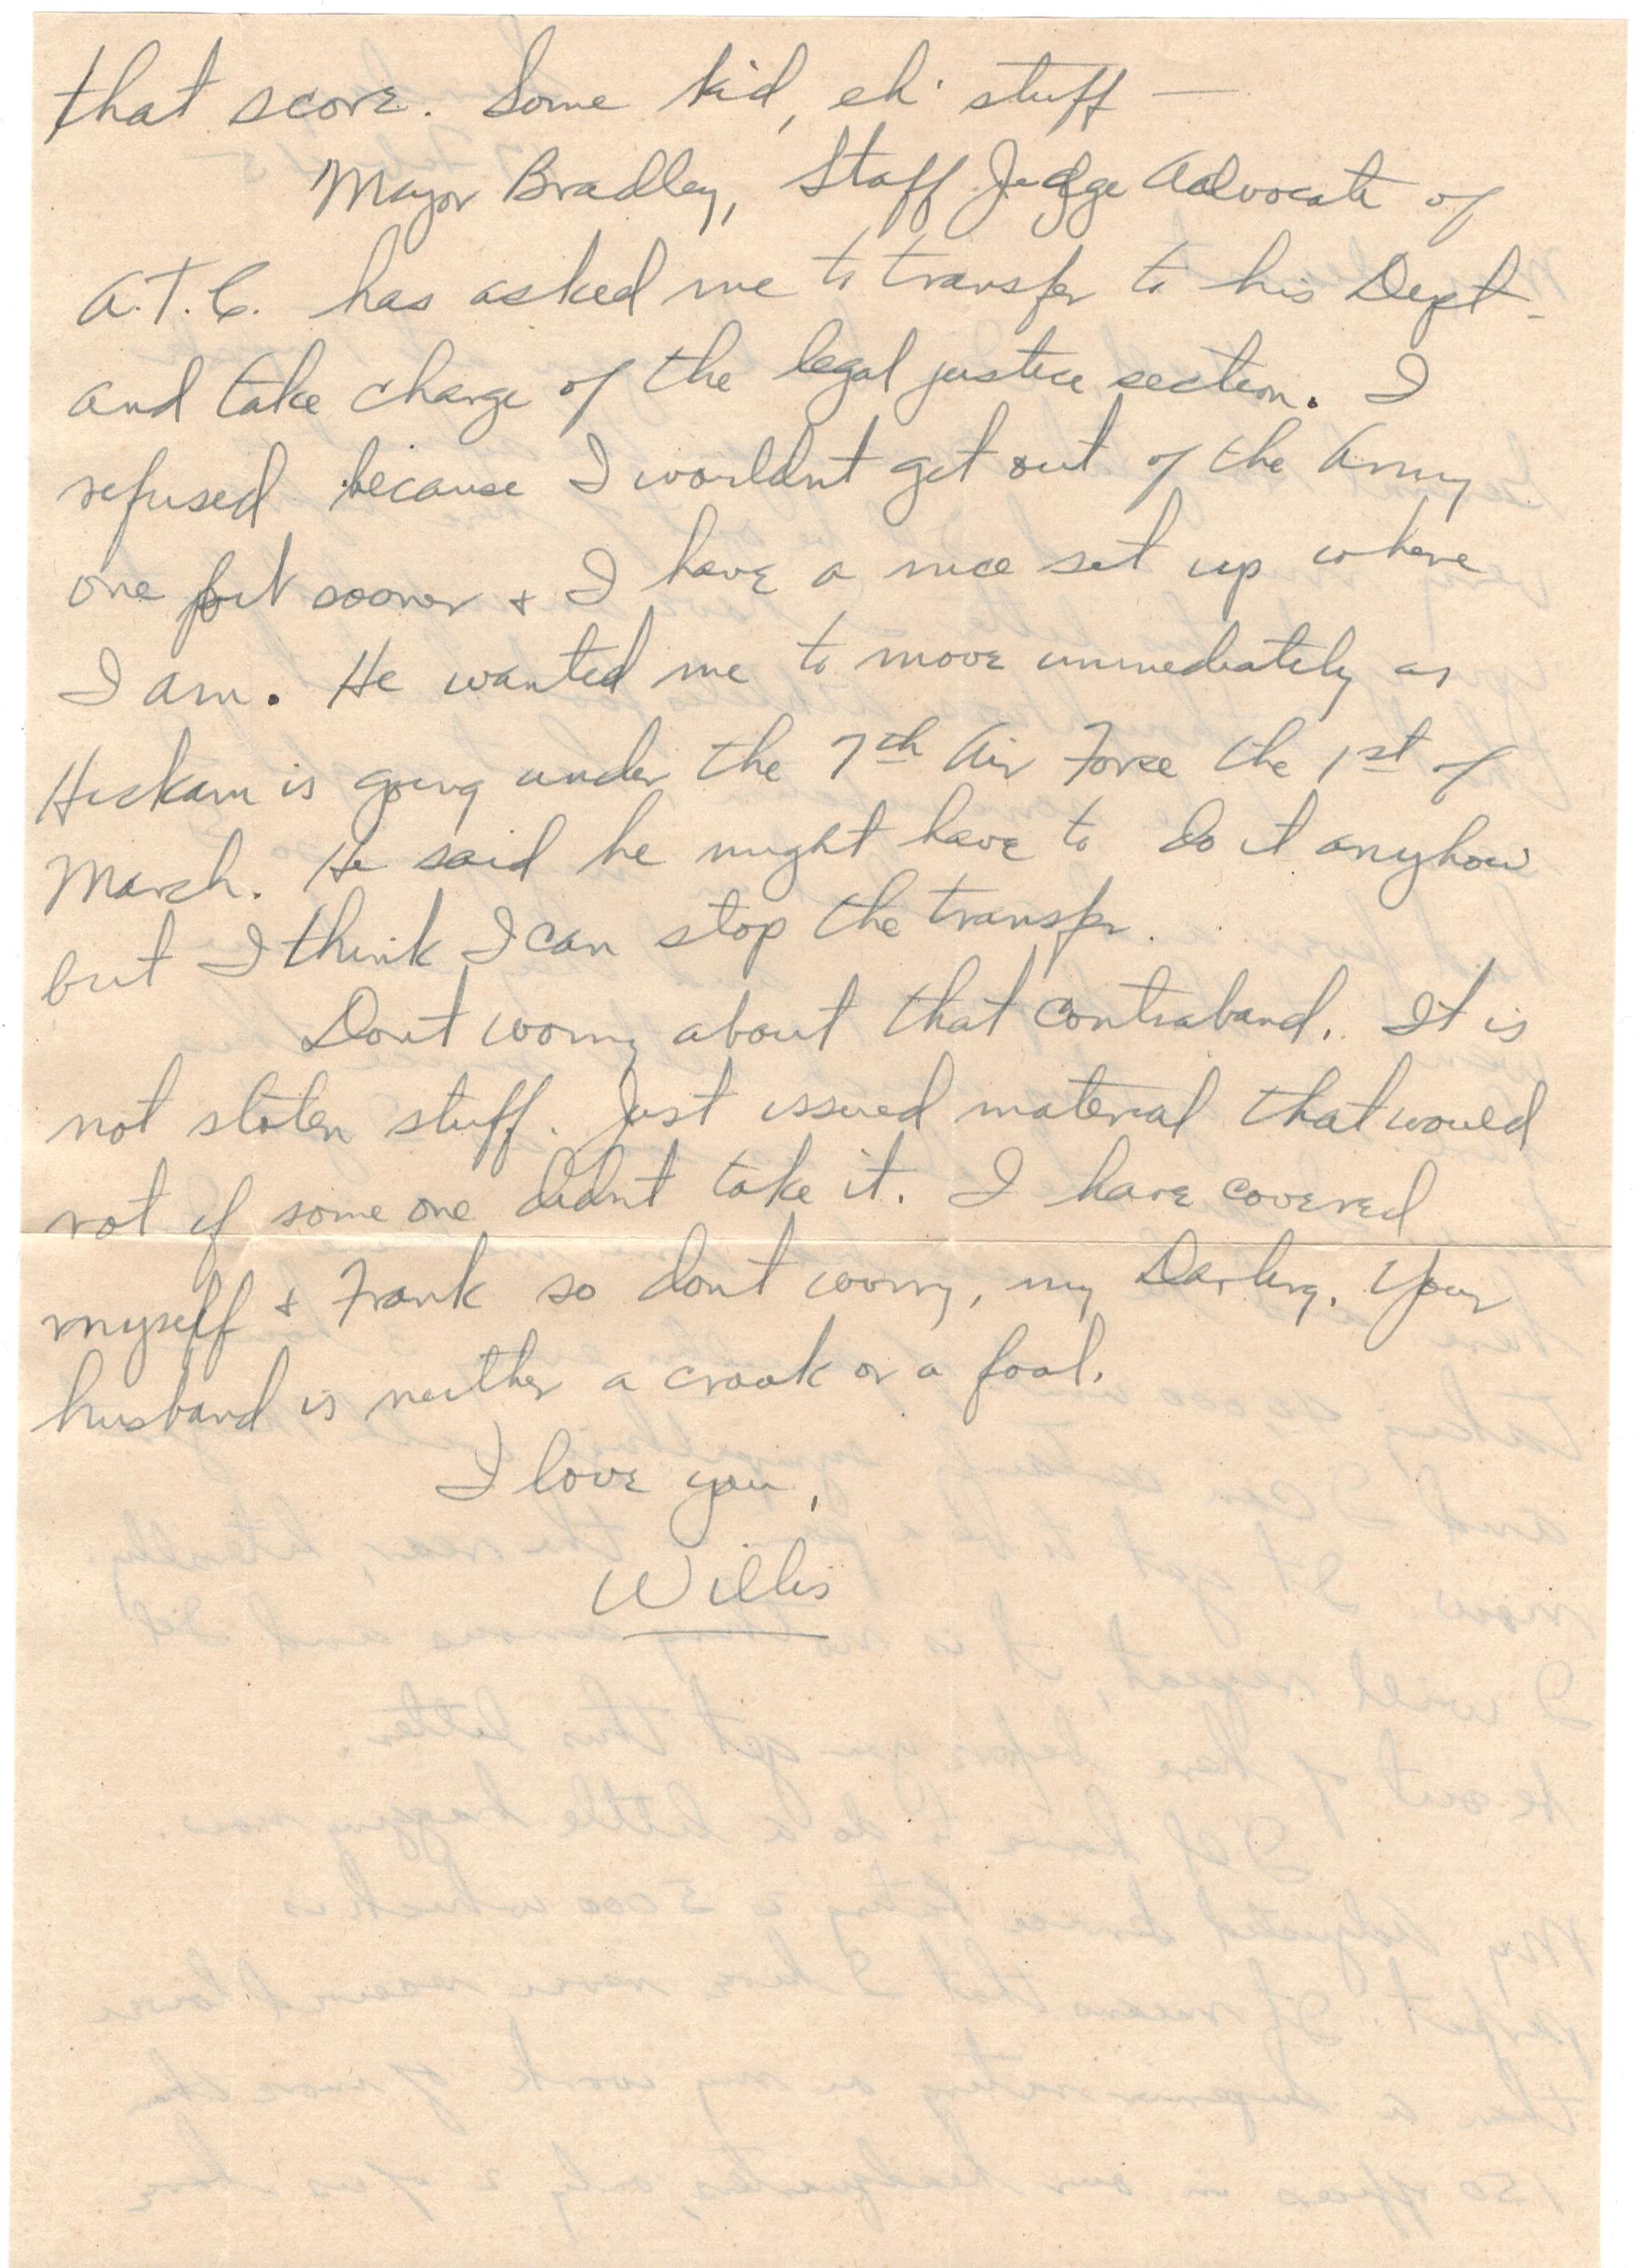 that score. Some kid, eh? stuff —
Major Bradley, Staff Judge Advocate of
A.T.C. has asked me to transfer to his Dept.
and take charge of the legal justice section. I
refused because I wouldnt get out of the Army
one bit sooner + I have a nice set up where
I am. He wanted me to move immediately as
Hickam is going under the 7th Air Force the 1st of
March. He said he might have to do it anyhow
but I think I can stop the transfer.
Dont worry about that contraband. It is
not stolen stuff. Just issued material that would
rot if some one didnt take it. I have covered
myself + Frank so dont worry, my Darling. Your
husband is neither a crook or a fool.
I love you,
Willis